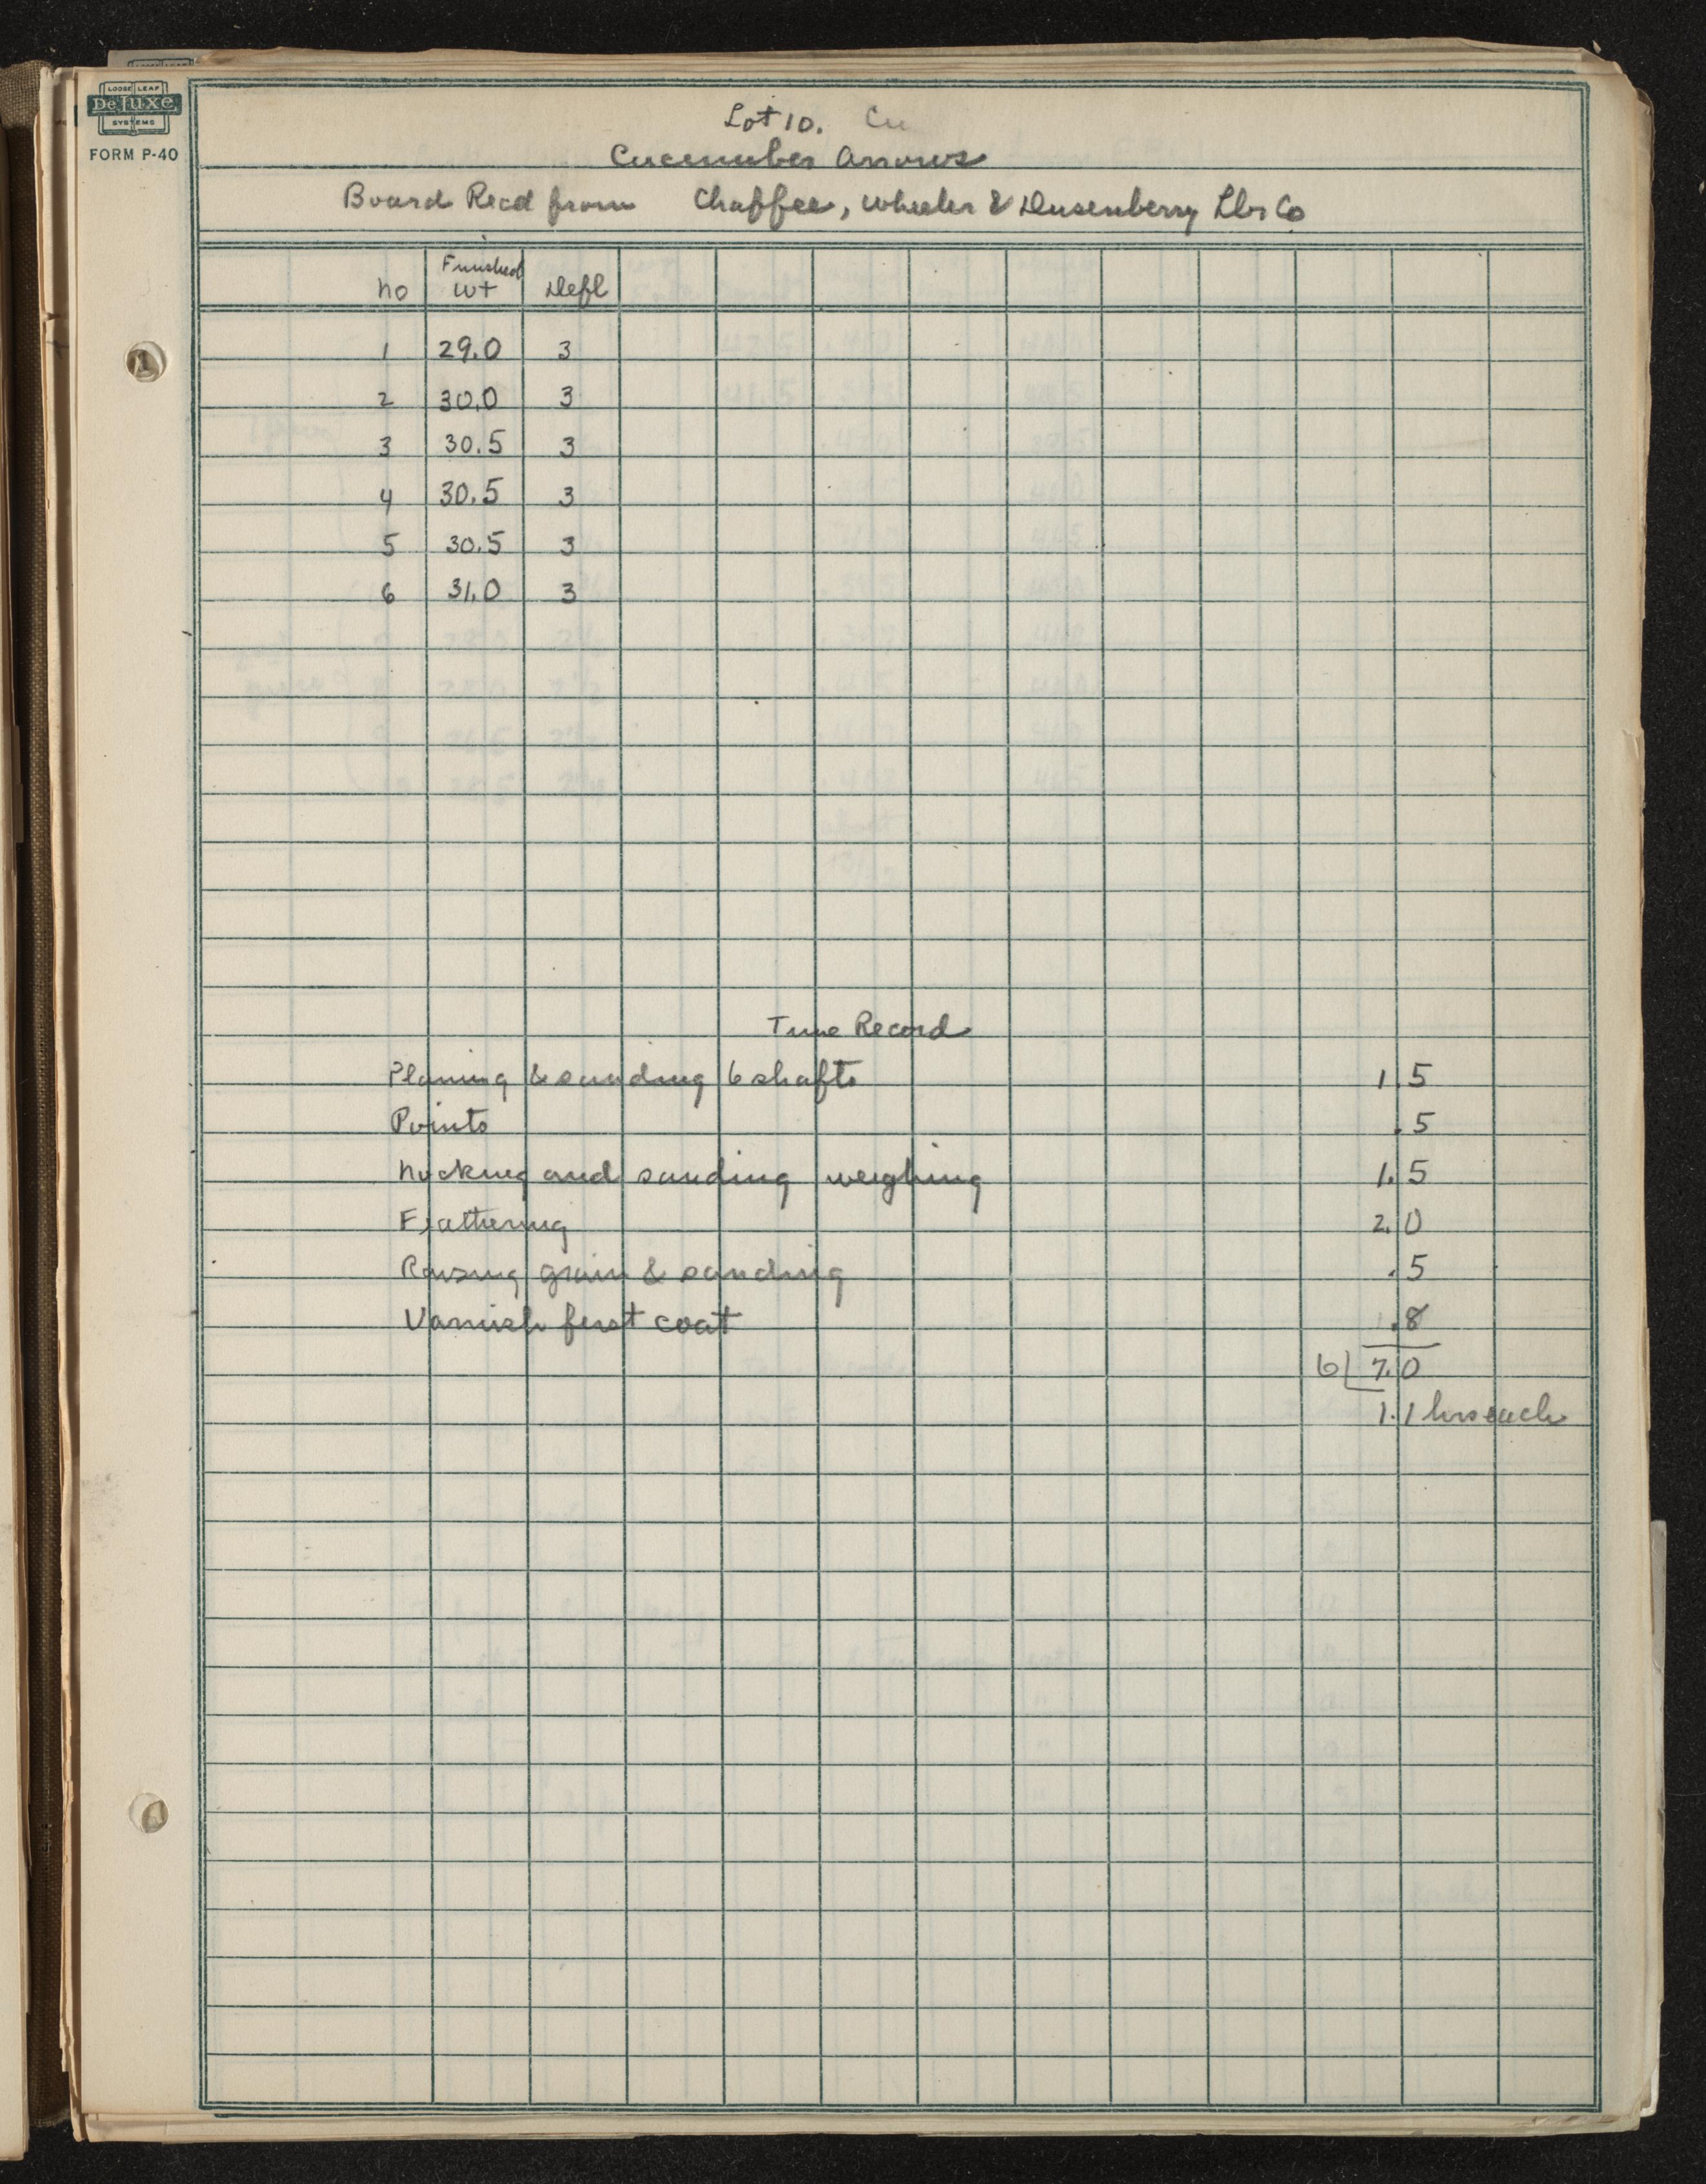 LOOSE LEAF
DeLuxe
SYSTEMS
FORM P-40
Lot 10. Cu
Cucumber Arrows
Board Recd from Chaffee, Wheeler & Dusenberry Lbr Co
No Finished Wt Defl
1 29.0 3
2 30.0 3
3 30.5 3
4 30.5 3
5 30.5 3
6 31.0 3
Time Record
Planing & sanding 6 shafts 1.5
Points .5
Nocking and sanding weighing 1.5
Feathering 2.0
Raising grain & sanding .5
Varnish first coat .8
6 7.0
1.1 hrs each